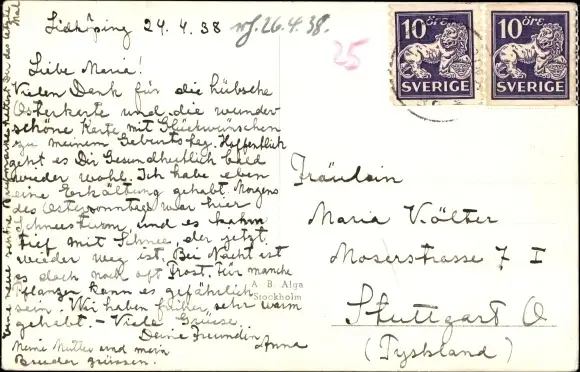 Lidköping 24.4.38 rf. 26.4.38.
25
Liebe Maria!
Vielen Dank für die hübsche
Osterkarte und die wunder-
schöne Karte mit Glückwünschen
zu meinem Geburtstag. Hoffentlich
geht es Dir Gesundheitlich bald
wieder wohl. Ich habe eben
eine Erkältung gehabt. Morgens
des Ostersonntags war hier
Schneesturm, und es kahm
tief mit Schnee, der jetzt
wieder weg ist. Bei Nacht ist
es doch noch oft Frost. Für manche
Pflanzen kann es gefährlich
sein. Wir haben früher sehr warm
gehabt. - Viele Grüsse.
Deine Freundin
Anna
Meine Mutter und mein
Bruder grüssen.
Eine neue schöne Briefmarke Dir das letzte
Mal
A. B. Alga
Stockholm
10 ÖRE
SVERIGE
10 ÖRE
SVERIGE
Fräulein
Maria Költer
Moserstrasse 7 I
Stuttgart O
(Tyskland)